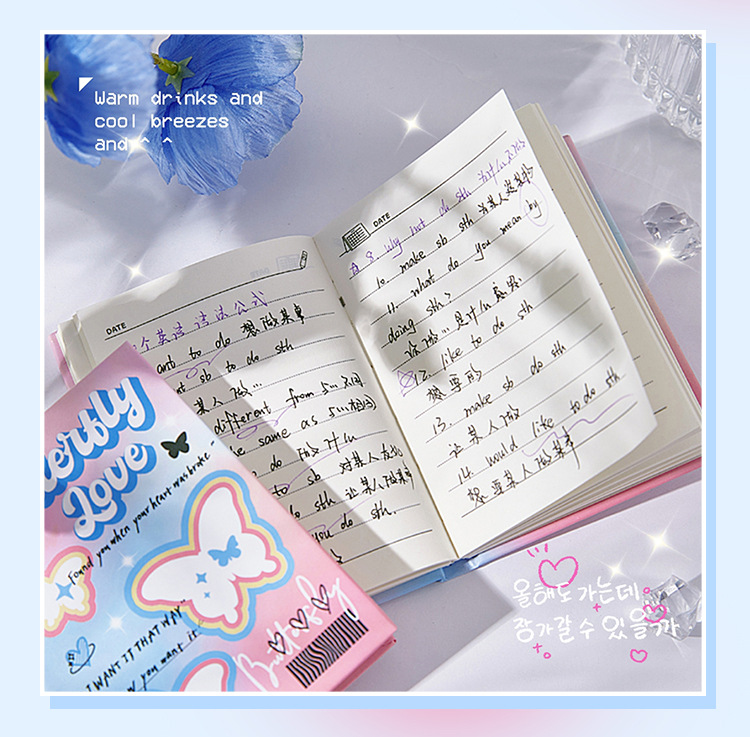 Warm drinks and
cool breezes
and ^ ^
DATE
个英语 语法公式
ant to do 想做某事
nt sb to do sth
某人做...
different from 与...不同
he same as 与...相同
do 做
to sb 对某人友好
do sth 让某人做某事
you do sth.
DATE
8. why not do sth 为什么不做
10. make sb sth 为某人
11. what do you mean by
doing sth?
你做...是什么意思
12. like to do sth
想要做
13. make sb do sth
让某人做
14. would like to do sth
想要某人做某事
erfly
Love
Found you when your heart was broke"
I WANT IT THAT WAY"
w you want it
Butterfly
올해도 가는데
장가갈 수 있을까